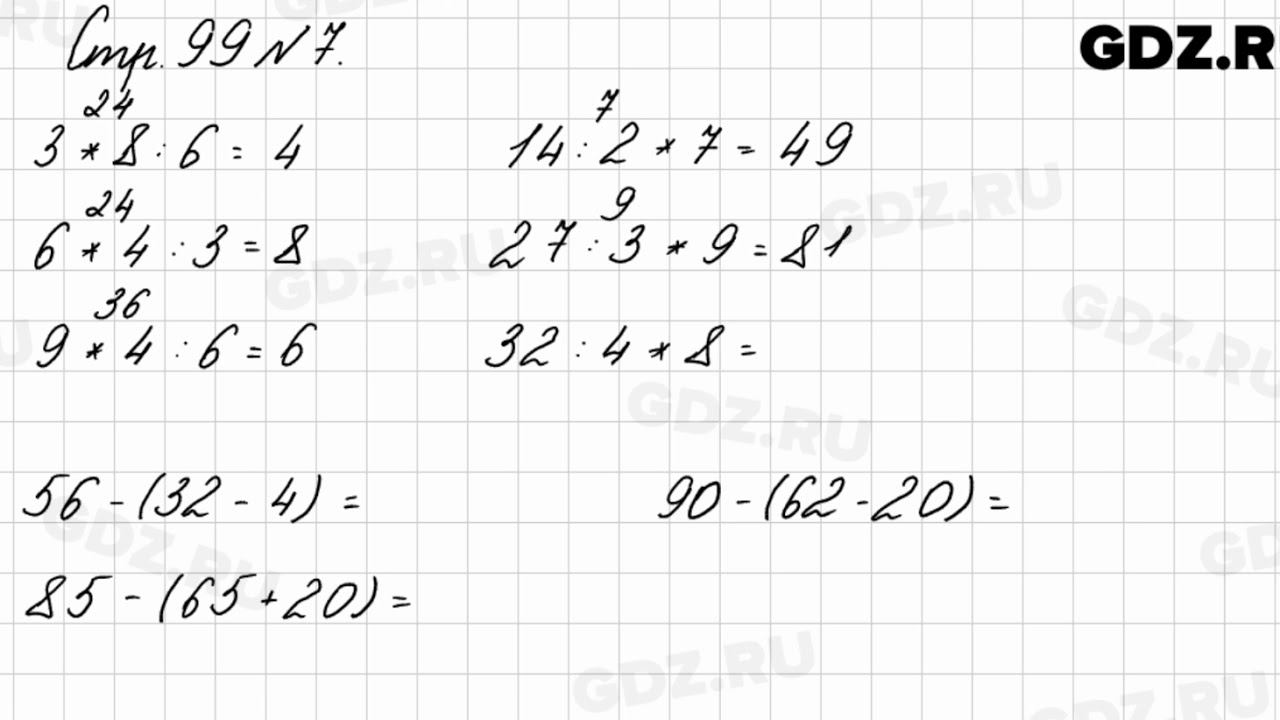 Стр. 99 № 7.
GDZ.R
24
3 * 8 : 6 = 4
7
14 : 2 * 7 = 49
24
6 * 4 : 3 = 8
9
27 : 3 * 9 = 81
36
9 * 4 : 6 = 6
32 : 4 * 8 =
56 - (32 - 4) =
90 - (62 - 20) =
85 - (65 + 20) =
GDZ.RU
GDZ.RU
GDZ.RU
GDZ.RU
GDZ.RU
GDZ.RU